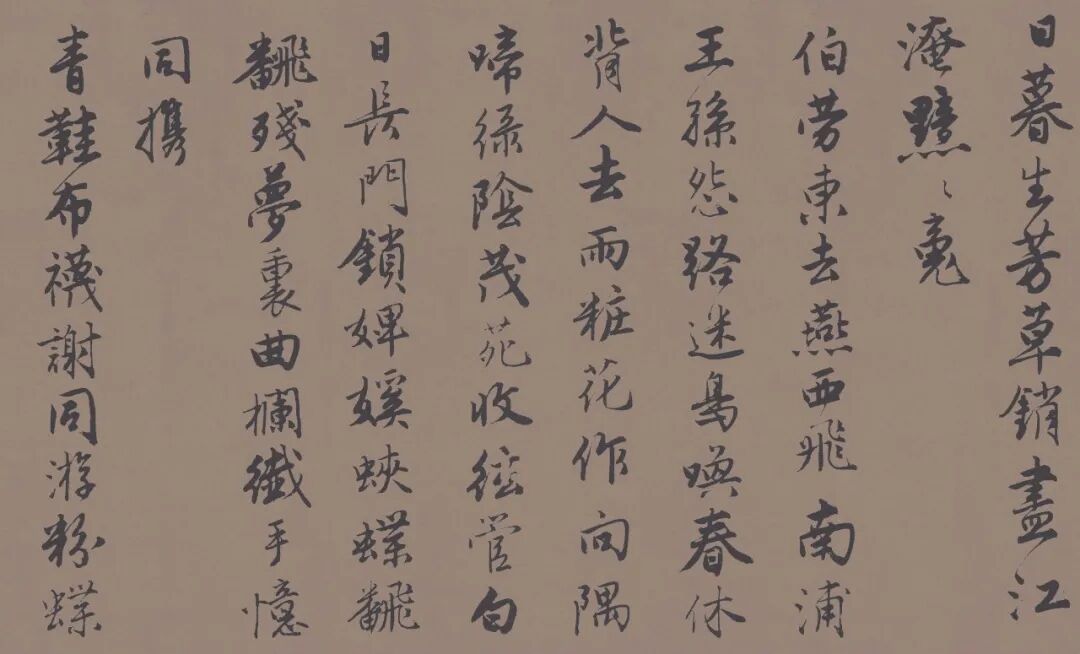 日暮生芳草銷盡江
淹黯〻魂
伯劳東去燕西飛南浦
王孫怨路迷鳥喚春休
背人去雨粧花作向隅
啼緑陰茂苑收絃管白
日長門鎖婢㜎蛺蝶飜
飜殘夢裏曲欄纖手憶
同携
青鞋布襪謝同游粉蝶